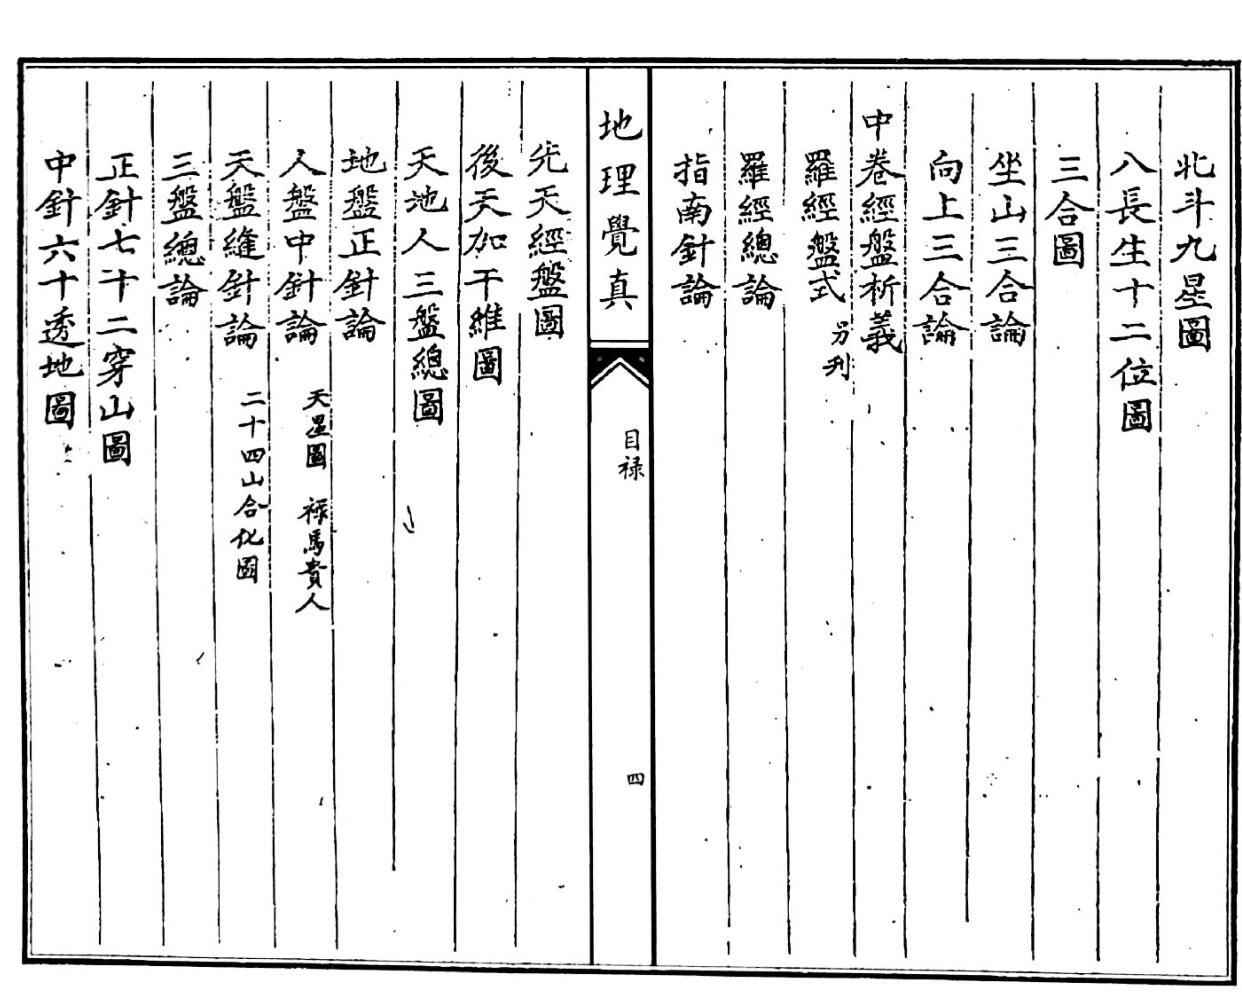 北斗九星圖
八長生十二位圖
三合圖
坐山三合論
向上三合論
中卷經盤析義
羅經盤式 另刋
羅經總論
指南針論
地理覺真
目禄
四
先天經盤圖
後天加干維圖
天地人三盤總圖
地盤正針論
人盤中針論 天星圖 禄馬貴人
天盤縫針論 二十四山合化圖
三盤總論
正針七十二穿山圖
中針六十透地圖